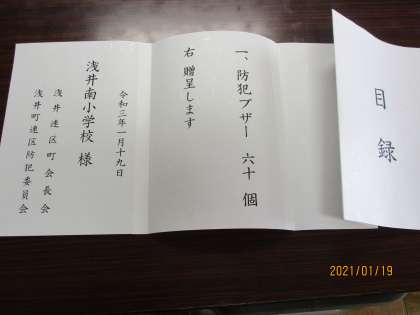 目録
一、防犯ブザー 六十 個
右 贈呈します
令和三年一月十九日
浅井連区町会長会
浅井町連区防犯委員会
浅井南小学校 様
2021/01/19